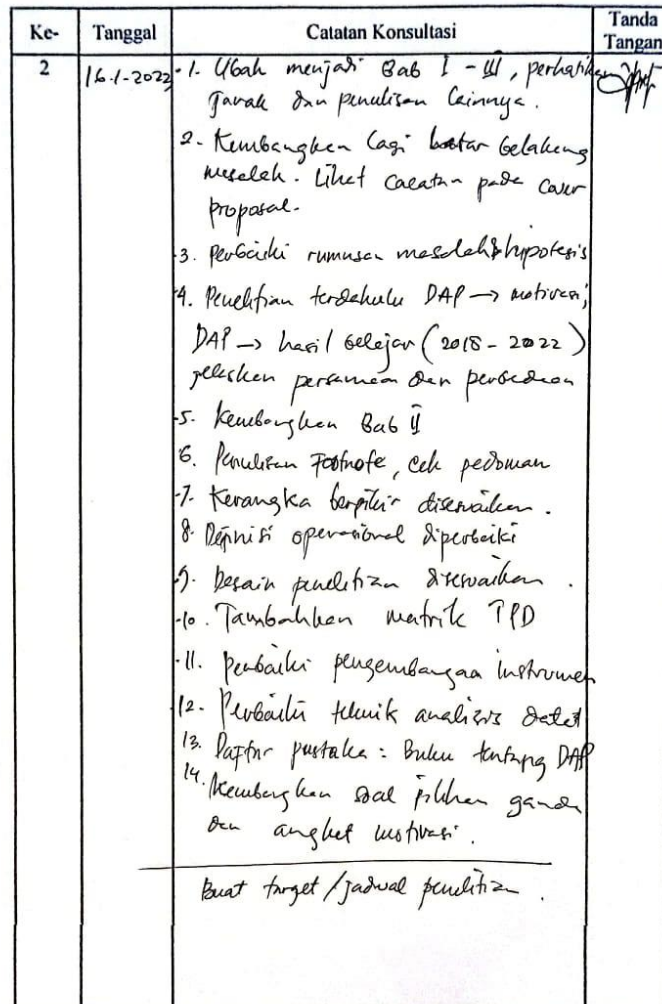 Ke- Tanggal Catatan Konsultasi Tanda Tangan
2 16-1-2022 1. Ubah menjadi Bab I - III, perhatikan
jarak dan penulisan lainnya.
2. Kembangken lagi latar belakang
masalah. Lihat catatan pada cover
proposal.
3. Perbaiki rumusan masalah & hipotesis
4. Penelitian terdahulu DAP → motivasi;
DAP → hasil belajar (2018 - 2022)
jelaskan persamaan dan perbedaan
5. Kembangkan Bab II
6. Penulisan Footnote, cek pedoman
7. Kerangka berpikir disesuaikan.
8. Definisi operasional diperbaiki
9. Desain penelitian disesuaikan.
10. Tambahkan matrik TPD
11. Perbaiki pengembangan instrumen
12. Perbaiki teknik analisis data
13. Daftar pustaka : Buku tentang DAP
14. Kembangkan soal pilihan ganda
dan angket motivasi.
Buat target / jadwal penelitian.